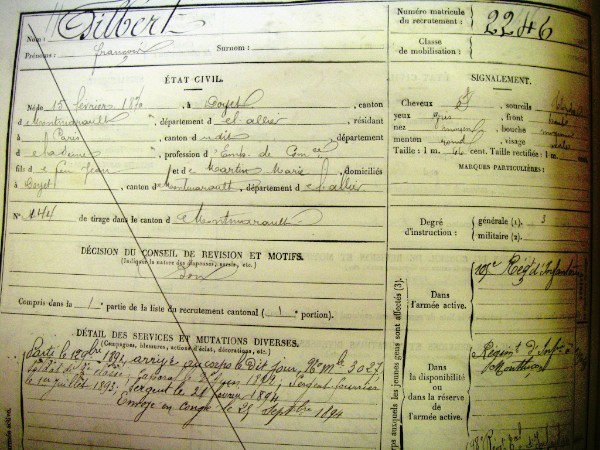 Nom : Gilbert
Prénoms : François Surnom :
Numéro matricule
du recrutement : 2246
Classe
de mobilisation :
ÉTAT CIVIL.
Né le 15 février 1870, à Doyet, canton
de Montmarault, département de l'allier, résidant
à Paris, canton du dit, département
de la Seine, profession d'Emp. de Com ce
fils de feu Jean et de Martin Marie, domiciliés
à Doyet, canton de Montmarault, département de l'allier
N° 144 de tirage dans le canton de Montmarault
SIGNALEMENT.
Cheveux sourcils
yeux gris front
nez moyen bouche moyenne
menton rond visage ovale
Taille : 1 m. 66 cent. Taille rectifiée : 1 m.
MARQUES PARTICULIÈRES :
DÉCISION DU CONSEIL DE RÉVISION ET MOTIFS.
(Indiquer la nature des dispenses, sursis, etc.)
Bon
Compris dans la 1e partie de la liste du recrutement cantonal ( 1e portion).
Degré
d'instruction :
générale (1). 3
militaire (2).
DÉTAIL DES SERVICES ET MUTATIONS DIVERSES.
(Campagnes, blessures, actions d'éclat, décorations, etc.)
Parti le 12 9bre 1891, arrivé au corps le dit jour, N° Mle 3027
Soldat de 2e classe. Caporal le 1892, Sergent fourrier
le 1er juillet 1893. Sergent le 21 février 1894
Envoyé en congé le 25 Septbre 1894
corps auxquels les jeunes gens sont affectés (3).
Dans
l'armée active.
105e Régt d'Infanterie
Dans
la disponibilité
ou
dans la réserve
de
l'armée active.
Régiment d'Infie
Montluçon
armée active.